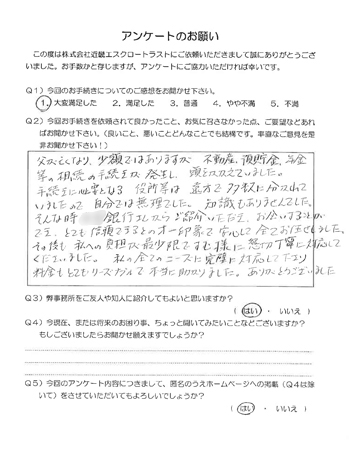 アンケートのお願い
この度は株式会社近畿エスクロートラストにご依頼いただきまして誠にありがとうござ
いました。お手数かと存じますが、アンケートにご協力いただければ幸いです。
Q1）今回のお手続きについてのご感想をお聞かせ下さい。
1. 大変満足した　2. 満足した　3. 普通　4. やや不満　5. 不満
Q2）今回お手続きを依頼されて良かったこと、お気に召さなかった点、ご要望などあれ
ばお聞かせ下さい。（良いこと、悪いことどんなことでも結構です。率直なご意見を是
非お聞かせ下さい！）
父が亡くなり、少額ではありますが、不動産、預貯金、
等の相続の手続きが発生し、頭をかかえていました。
手続きに必要となる役所等は遠方で多数に分かれて
いましたので自分では無理でした。知識もありませんでした。
そんな時 銀行さんからご紹介いただき、お会いすることが
でき、とても信頼できるとのオーラ印象で安心して全てお任せしました。
その後も私への負担が最少限ですむ様に懇切丁寧に対応して
くださいました。私の全てのニーズに完璧に対応して下さり
料金もとてもリーズナブルで本当に助かりました。ありがとうございました
Q3）弊事務所をご友人や知人に紹介してもよいと思いますか？
（ はい ・ いいえ ）
Q4）今現在、または将来のお困り事、ちょっと聞いてみたいことなどございますか？
もしございましたらお聞かせ願えますでしょうか？
Q5）今回のアンケート内容につきまして、匿名のうえホームページへの掲載（Q4は除
いて）をさせていただいてもよろしいでしょうか？
（ はい ・ いいえ ）